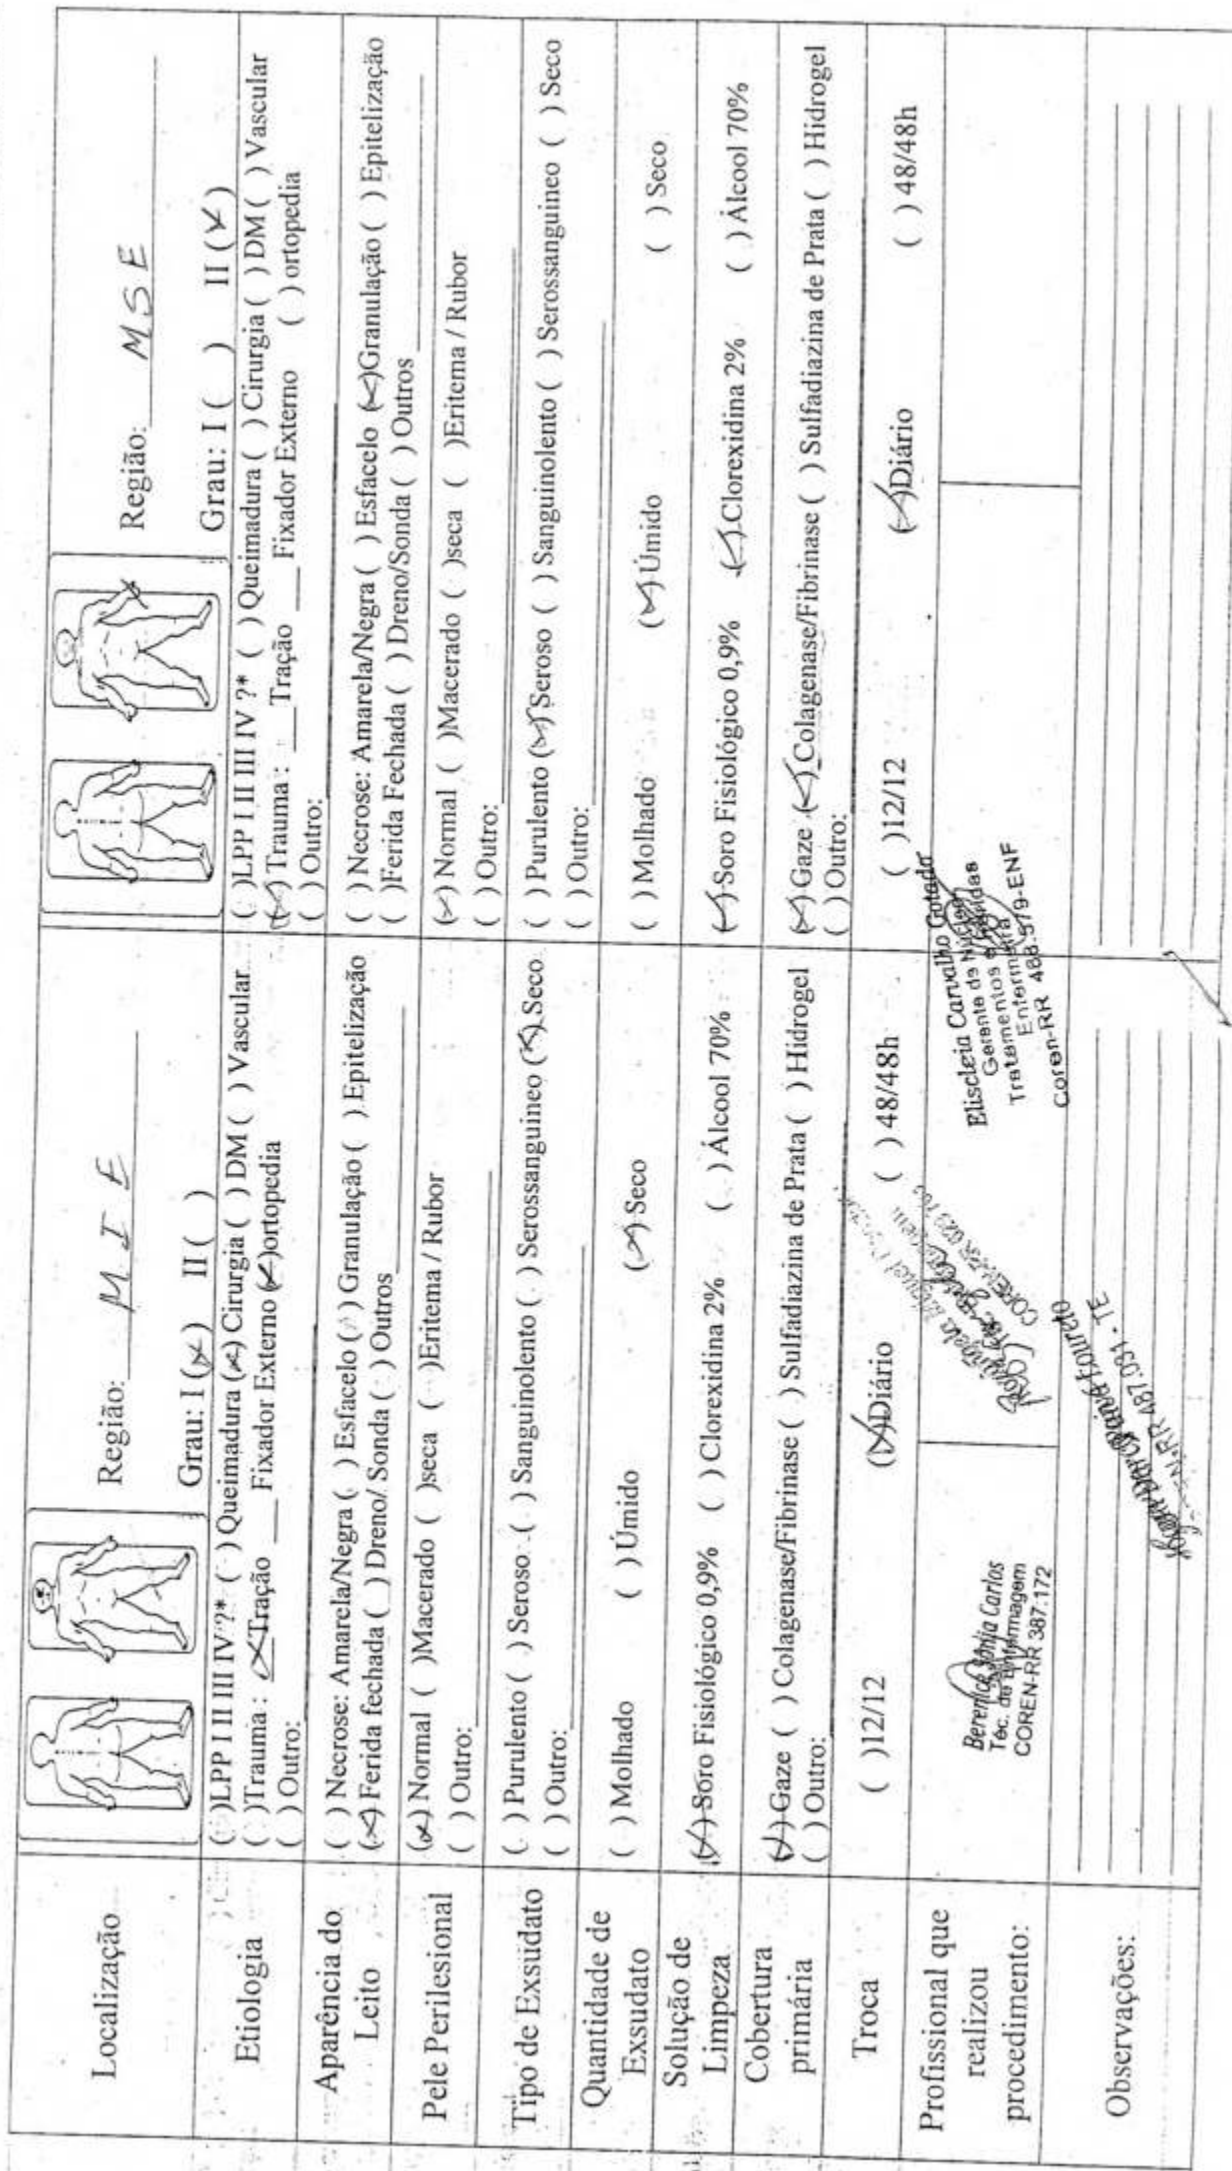 Localização
Região: MIE
Grau: I (x) II ( )
Região: MSE
Grau: I ( ) II (x)
Etiologia
( )LPP I II III IV ?* ( ) Queimadura (x) Cirurgia ( ) DM ( ) Vascular
( )Trauma : x Tração ___ Fixador Externo (x)ortopedia
( ) Outro:
( )LPP I II III IV ?* ( ) Queimadura ( ) Cirurgia ( ) DM ( ) Vascular
(x) Trauma : ___Tração ___ Fixador Externo ( ) ortopedia
( ) Outro:
Aparência do
Leito
( ) Necrose: Amarela/Negra ( ) Esfacelo ( ) Granulação ( ) Epitelização
(x) Ferida fechada ( ) Dreno/ Sonda ( ) Outros
( ) Necrose: Amarela/Negra ( ) Esfacelo (x)Granulação ( ) Epitelização
( )Ferida Fechada ( ) Dreno/Sonda ( ) Outros
Pele Perilesional
(x) Normal ( )Macerado ( )seca ( )Eritema / Rubor
( ) Outro:
(x) Normal ( )Macerado ( )seca ( )Eritema / Rubor
( ) Outro:
Tipo de Exsudato
( ) Purulento ( ) Seroso ( ) Sanguinolento ( ) Serossanguineo (x) Seco
( ) Outro:
( ) Purulento (x) Seroso ( ) Sanguinolento ( ) Serossanguineo ( ) Seco
( ) Outro:
Quantidade de
Exsudato
( ) Molhado ( ) Úmido (x) Seco
( ) Molhado (x) Úmido ( ) Seco
Solução de
Limpeza
(x) Soro Fisiológico 0,9% ( ) Clorexidina 2% ( ) Álcool 70%
(x) Soro Fisiológico 0,9% (x) Clorexidina 2% ( ) Álcool 70%
Cobertura
primária
(x) Gaze ( ) Colagenase/Fibrinase ( ) Sulfadiazina de Prata ( ) Hidrogel
( ) Outro:
(x) Gaze (x) Colagenase/Fibrinase ( ) Sulfadiazina de Prata ( ) Hidrogel
( ) Outro:
Troca
( )12/12 (x)Diário ( ) 48/48h
( )12/12 (x)Diário ( ) 48/48h
Profissional que
realizou
procedimento:
Berenice Sônja Carlos
Téc. de Enfermagem
COREN-RR 387.172
Eliscleia Carvalho
Gerente de
Tratamentos
Enfermeira
Coren-RR 488.579-ENF
Observações: